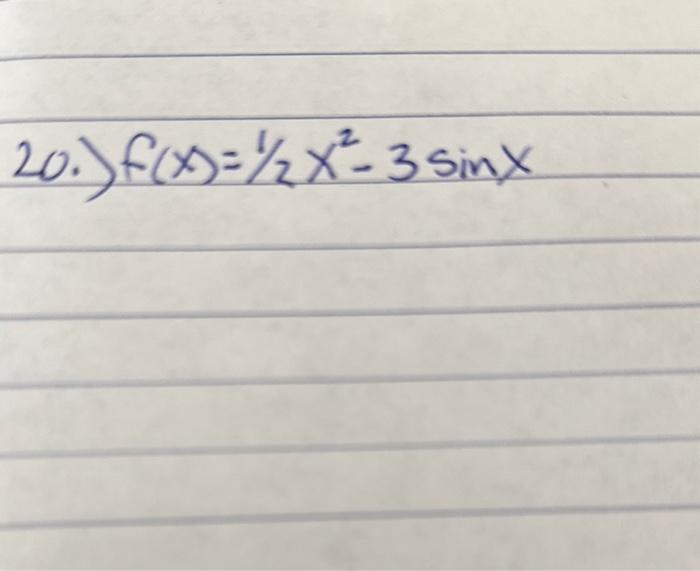 20.) f(x)=1/2 x²- 3 sinx